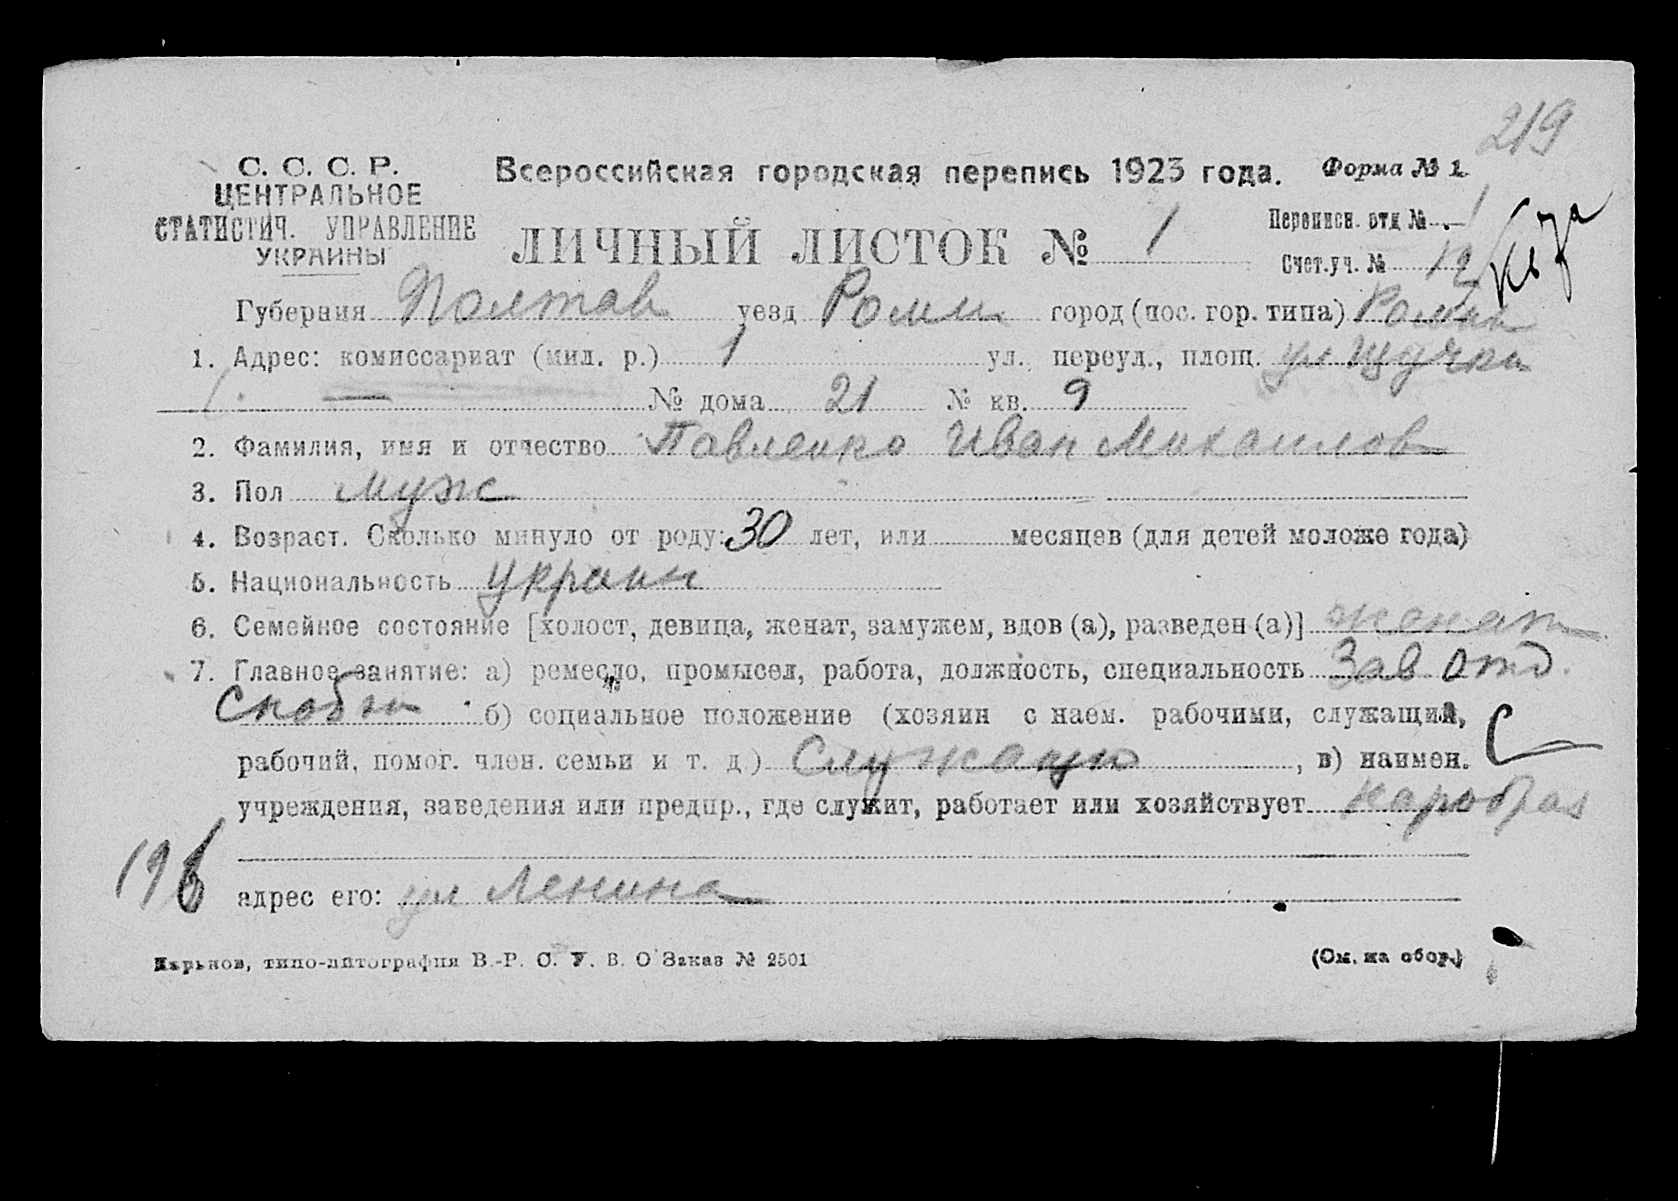 219
С. С. С. Р.
ЦЕНТРАЛЬНОЕ
СТАТИСТИЧ. УПРАВЛЕНИЕ
УКРАИНЫ
Всероссийская городская перепись 1923 года.
Форма № 1.
ЛИЧНЫЙ ЛИСТОК № 1
Переписн. отд. № 1
Счет. уч. № 12
Губерния Полтав уезд Ромн город (пос. гор. типа) Ромны
1. Адрес: комиссариат (мил. р.) 1 ул., переул., площ. ул Щучки
№ дома 21 № кв. 9
2. Фамилия, имя и отчество Павленко Иван Михаилов
3. Пол муж
4. Возраст. Сколько минуло от роду: 30 лет, или месяцев (для детей моложе года)
5. Национальность украин
6. Семейное состояние [холост, девица, женат, замужем, вдов (а), разведен (а)] женат
7. Главное занятие: а) ремесло, промысел, работа, должность, специальность Зав отд.
снабж б) социальное положение (хозяин с наем. рабочими, служащий,
рабочий, помог. член. семьи и т. д.) Служащ , в) наимен. С
учреждения, заведения или предпр., где служит, работает или хозяйствует Наробраз
196
адрес его: ул Ленина
Харьков, типо-литография В.-Р. С. У. В. О Заказ № 2501
(См. на обор.)